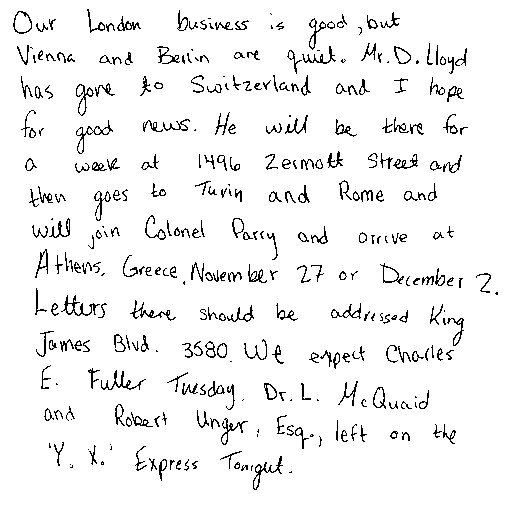 Our London business is good, but
Vienna and Berlin are quiet. Mr. D. Lloyd
has gone to Switzerland and I hope
for good news. He will be there for
a week at 1496 Zermott Street and
then goes to Turin and Rome and
will join Colonel Parry and arrive at
Athens, Greece, November 27 or December 2.
Letters there should be addressed King
James Blvd. 3580. We expect Charles
E. Fuller Tuesday. Dr. L. McQuaid
and Robert Unger, Esq., left on the
'Y. X.' Express Tonigut.